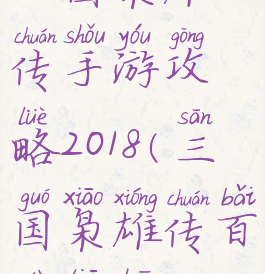 chuán shǒu yóu gōng
传手游攻
lüè sān
略2018(三
guó xiāo xióng chuán bǎi
国枭雄传百